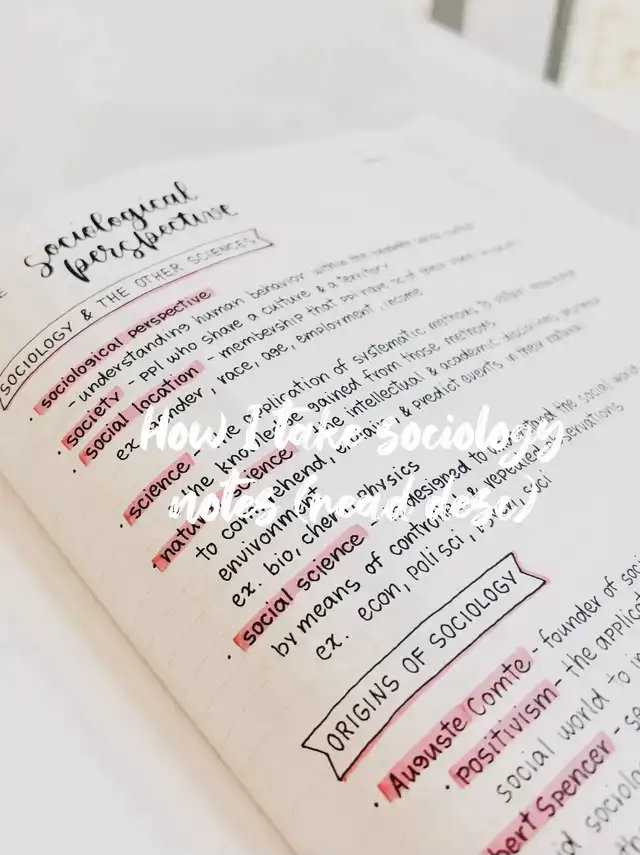 sociological
perspective
SOCIOLOGY & THE OTHER SCIENCES
• sociological perspective
- understanding human behavior within the
• society - ppl who share a culture & a territory
• social location - membership that ppl have
ex. gender, race, age, employment, income
• science - the application of systematic methods to obtain knowledge
& the knowledge gained from those methods
• natural science - the intellectual & academic disciplines
to comprehend, explain, & predict events in their natural
environment
ex. bio, chem, physics
• social science - designed to understand the social world
by means of controlled & repeated observations
ex. econ, poli sci, psych, soci
ORIGINS OF SOCIOLOGY
• Auguste Comte - founder of soci
• positivism - the applicat
social world to
bert Spencer - se
sociolo
How I take sociology
notes (read desc)